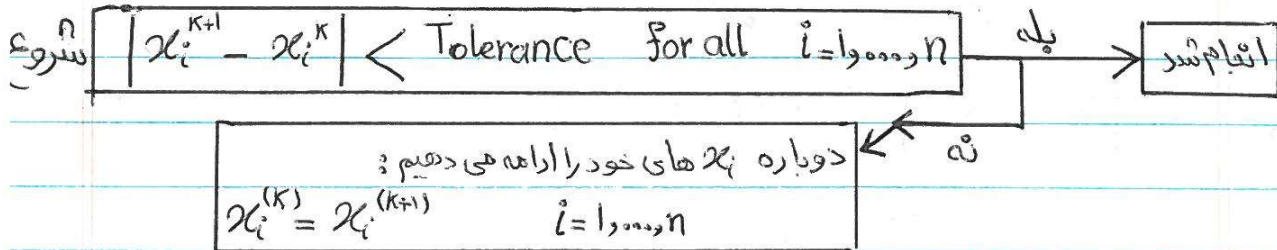 شروع
|xᵢᴷ⁺¹ - xᵢᴷ| < Tolerance for all i=1,...,n
بله
انجام شد
نه
دوباره xᵢ های خود را ادامه می دهیم :
xᵢ⁽ᴷ⁾ = xᵢ⁽ᴷ⁺¹⁾ i=1,...,n